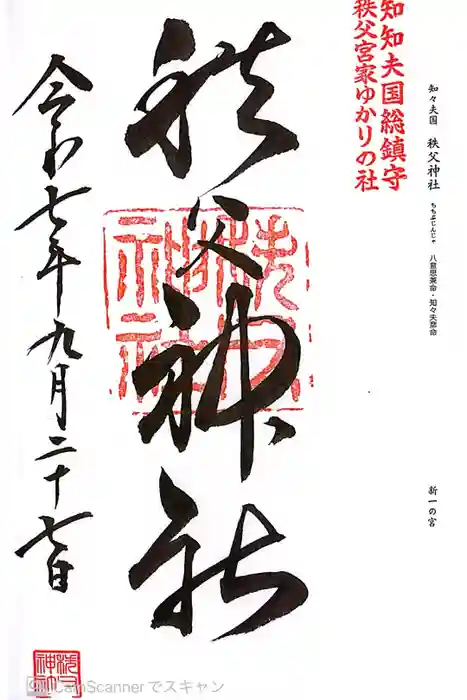 知々夫国 秩父神社 ちちぶじんじゃ 八意思兼命・知々夫彦命
新一の宮
知知夫国総鎮守
秩父宮家ゆかりの社
秩父神社
令和七年九月二十七日
CamScannerでスキャン